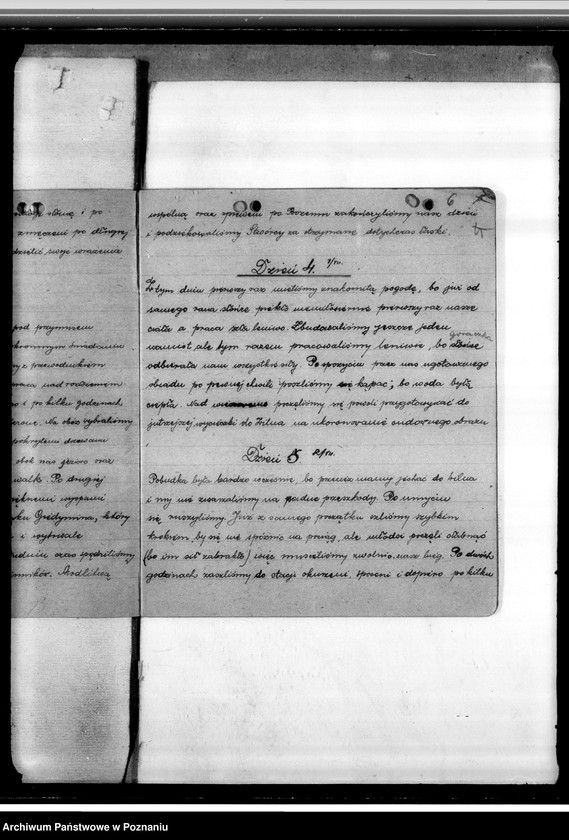 słońce i po
zmęczeni po długiej
dzielić swoje wrażenia
pod przymusem
skromnym śniadaniu
z przewodnikiem
praca nad rozbiciem
i po kilku godzinach
Na obóz wybraliśmy
pokrytem drzewami
obok nas jezioro oraz
walk. Po drugiej
pięknemi wyspami
Giedymina, który
i wytrwale
oraz spędziliśmy
Modlitwą
6
wspólną oraz śpiewem po Bożemu zakończyliśmy nasz dzień
i podziękowaliśmy Stwórcy za otrzymane dotychczas łaski.
Dzień 4. 1/VII.
W tym dniu pierwszy raz mieliśmy znakomitą pogodę, bo już od
samego rana słońce piekło niemiłosiernie pierwszy raz nasze
ciała a praca szła leniwo. Zbudowaliśmy jeszcze jeden
namiot, ale tym razem pracowaliśmy leniwie, bo gorączka
odbierała nam wszystkie siły. Po spożyciu przez nas ugotowanego
obiadu po pewnej chwili poszliśmy się kąpać, bo woda była
ciepła. Nad wieczorem poczęliśmy się powoli przygotowywać do
jutrzejszej wycieczki do Wilna na ukoronowanie cudownego obrazu
Dzień 5 2/VII.
Pobudka była bardzo wcześnie, bo przecież mamy jechać do Wilna
i my nie zważaliśmy na żadne przeszkody. Po umyciu
się ruszyliśmy. Już z samego początku szliśmy szybkim
krokiem, by się nie spóźnić na pociąg, ale młodsi poczęli słabnąć
(bo im sił zabrakło) więc musieliśmy zwolnić nasz bieg. Po dwóch
godzinach zaszliśmy do stacji okurzeni, spoceni i dopiero po kilku
Archiwum Państwowe w Poznaniu